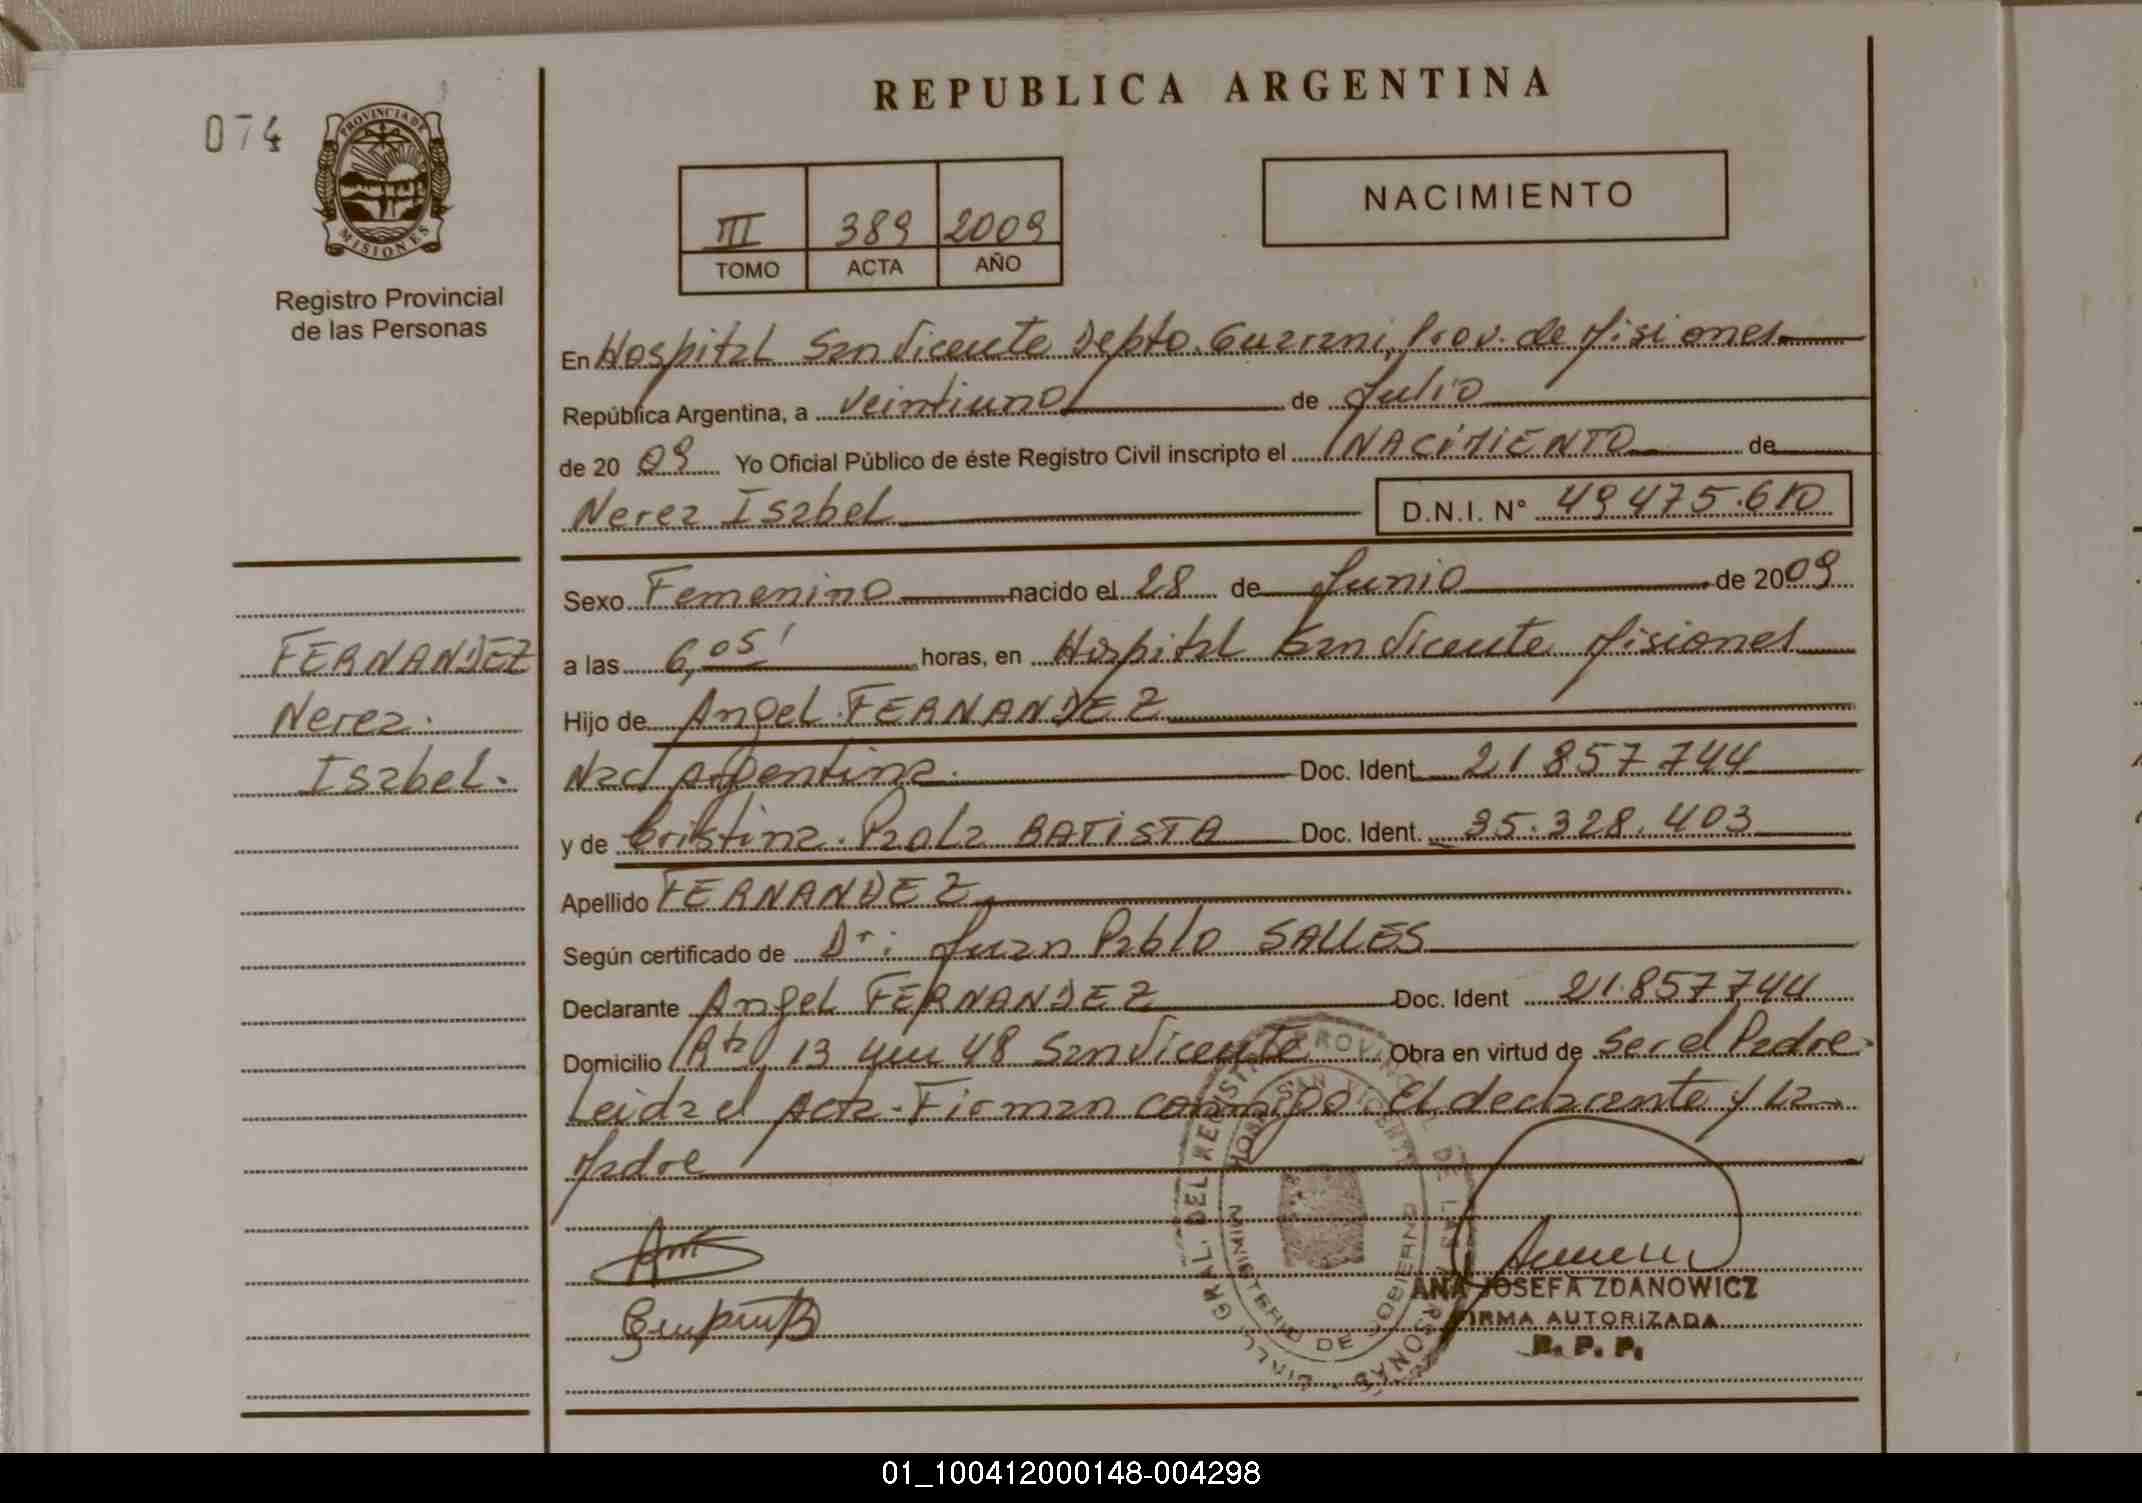 REPUBLICA ARGENTINA
074
PROVINCIA DE
MISIONES
Registro Provincial
de las Personas
III 389 2009
TOMO ACTA AÑO
NACIMIENTO
En Hospital San Vicente Depto. Guarani, Prov. de Misiones
República Argentina, a veintiuno de Julio
de 2009 Yo Oficial Público de éste Registro Civil inscripto el NACIMIENTO de
Nerea Isabel D.N.I. N° 49475.610
Sexo Femenino nacido el 28 de Junio de 2009
a las 6,05' horas, en Hospital San Vicente Misiones
Hijo de Angel FERNANDEZ
Nac Argentina. Doc. Ident 21857744
y de Cristina Paola BATISTA Doc. Ident. 35.328.403
Apellido FERNANDEZ
Según certificado de Dr: Juan Pablo SALLES
Declarante Angel FERNANDEZ Doc. Ident 21.857744
Domicilio Rta 13 48 San Vicente Obra en virtud de Ser el Padre
Leida el Acta-Firman conmigo El declarante y La
Madre
FERNANDEZ
Nerea
Isabel.
DIREC. GRAL. DEL REGISTRO PROVINCIAL DE LAS PERSONAS
HOSP. SAN VICENTE
MINISTERIO DE GOBIERNO
ANA JOSEFA ZDANOWICZ
FIRMA AUTORIZADA
R. P. P.
01_100412000148-004298